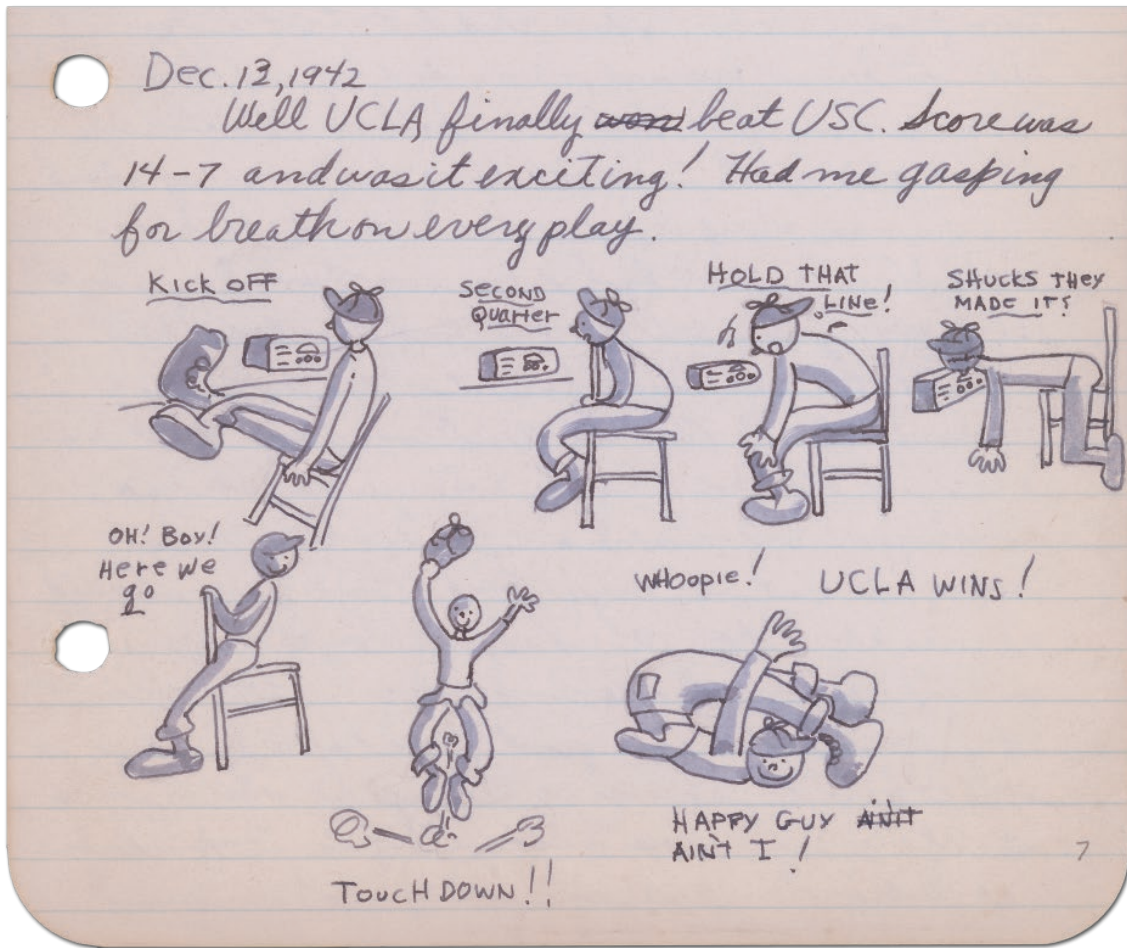 Dec. 13, 1942
Well UCLA finally won beat USC. Score was
14-7 and was it exciting! Had me gasping
for breath on every play.
Kick off
SECOND
Quarter
HOLD THAT
LINE!
SHUCKS THEY
MADE IT!
OH! Boy!
Here we
go
WHOOPIE! UCLA WINS!
HAPPY GUY AIN'T
AIN'T I!
TOUCHDOWN!!
7